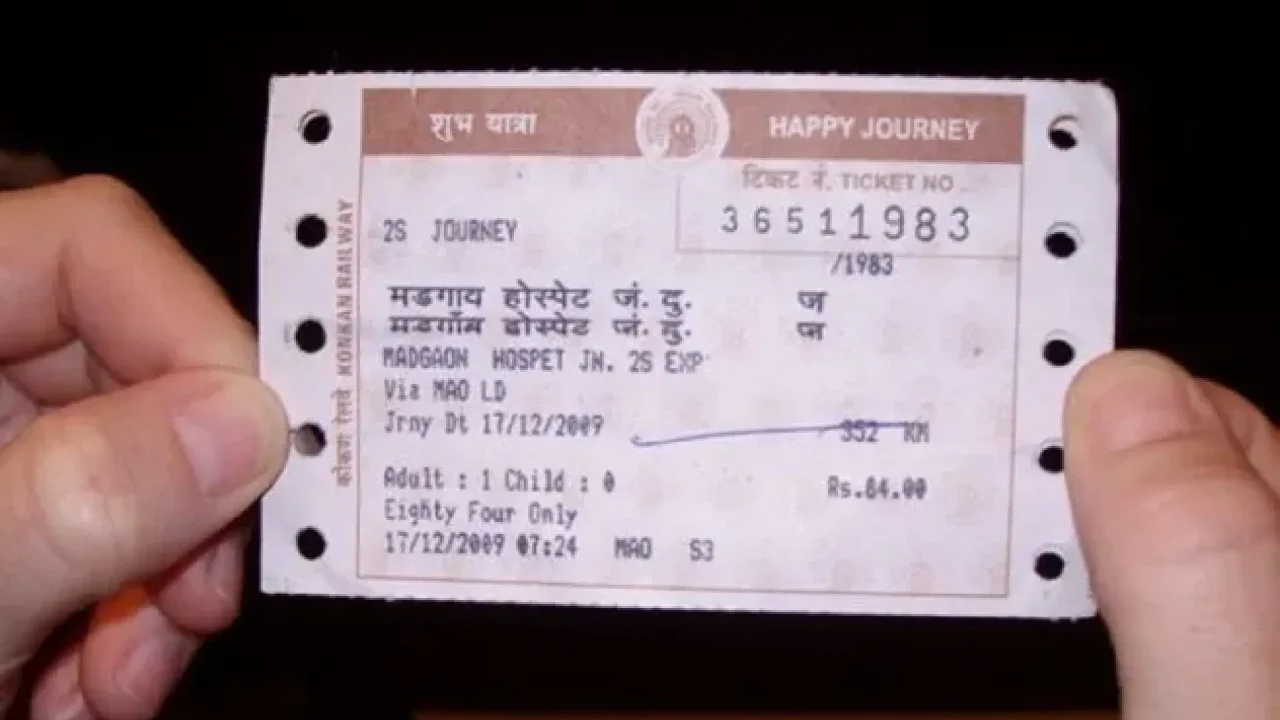 शुभ यात्रा HAPPY JOURNEY
टिकट नं. TICKET NO.
36511983
2S JOURNEY
/1983
मडगाय होस्पेट जं. दु. ज
मडगाँब होस्पेट जं. दु. ज
MADGAON HOSPET JN. 2S EXP
Via MAO LD
Jrny Dt 17/12/2009 352 KM
Adult : 1 Child : 0 Rs.84.00
Eighty Four Only
17/12/2009 07:24 MAO S3
कोंकण रेलवे KONKAN RAILWAY